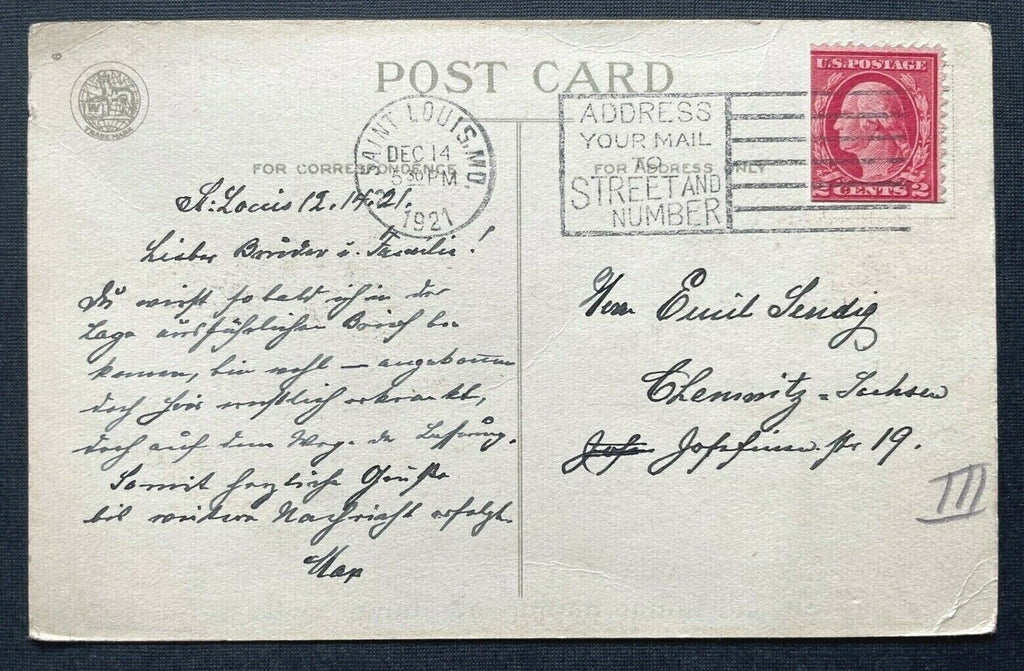 6
POST CARD
TRADE MARK
FOR CORRESPONDENCE
FOR ADDRESS ONLY
SAINT LOUIS, MO.
DEC 14
5 30 PM
1921
ADDRESS
YOUR MAIL
TO
STREET AND
NUMBER
U.S. POSTAGE
2 CENTS 2
St. Louis 12.14.21.
Lieber Bruder u. Familie!
Du wirst sobald ich in der
Lage ausführlichen Brief be-
kommen, bin wohl — angekommen
doch hier ernstlich erkrankt,
doch auf dem Wege der Besserung.
Somit herzliche Grüße
bis weitere Nachricht erfolgt.
Max
Herrn Emil Sendig
Chemnitz = Sachsen
Jose Josefinenstr 19.
III